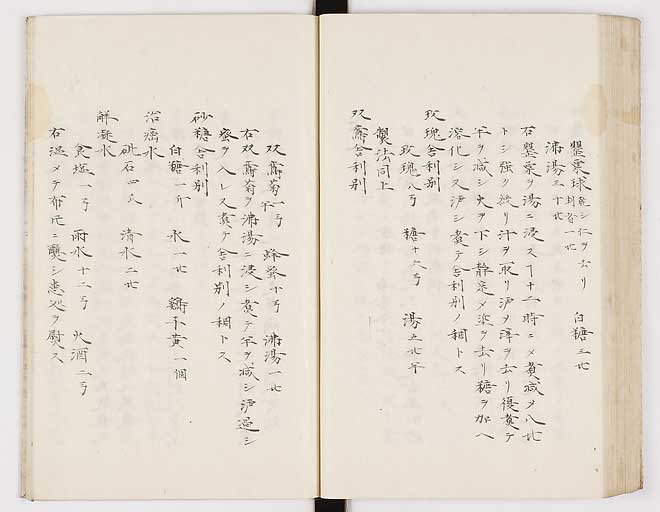 罌粟球 乾シ仁ヲ去リ 刻者一比 白糖三比
沸湯三十比
右罌粟ヲ湯ニ浸ス丅十二時ニメ煮減メ八比
トシ強ク絞リ汁ヲ取リ沪ヲ滓ヲ去リ復煮テ
半ヲ減シ火ヲ下シ静定メ塗ヲ去リ糖ヲ加ヘ
溶化シス沪シ煮テ舎利別ノ稠トス
玫瑰舎利別
玫瑰八弓 糖十六弓 湯五比半
製法同上
双鸞舎利別
双鸞菊一弓半 蜂蜜十弓 沸湯一比
右双鸞菊ヲ沸湯ニ浸シ煮テ半ヲ減シ沪過シ
蜜ヲ入レス煮テ舎利別ノ稠トス
砂糖舎利別
白糖一斤 水一比 鶏子黄一個
治瘍水
砒石四爪 清水二比
解凝水
食塩一弓 雨水十二弓 火酒二弓
右温メテ布片ニ醮シ患処ヲ熨ス